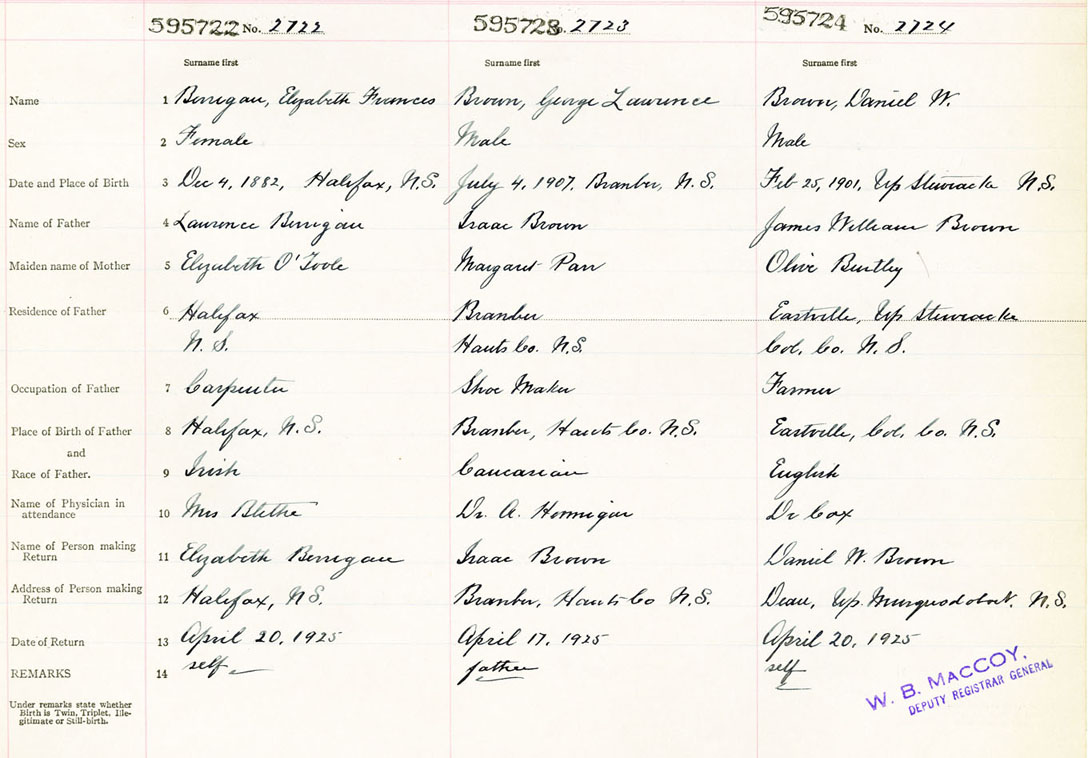 595722 No. 2722 595723 No. 2723 595724 No. 2724
Surname first Surname first Surname first
Name 1 Berrigan, Elizabeth Frances Brown, George Lawrence Brown, Daniel W.
Sex 2 Female Male Male
Date and Place of Birth 3 Dec 4, 1882, Halifax, N.S. July 4, 1907, Branber, N.S. Feb 25, 1901, Up Stewiacke N.S.
Name of Father 4 Lawrence Berrigan Isaac Brown James William Brown
Maiden name of Mother 5 Elizabeth O'Toole Margaret Parr Olive Bentley
Residence of Father 6 Halifax Branber Eastville, Up Stewiacke
N. S. Hants Co. N.S. Col. Co. N. S.
Occupation of Father 7 Carpenter Shoe Maker Farmer
Place of Birth of Father 8 Halifax, N.S. Branber, Hants Co. N.S. Eastville, Col. Co. N.S.
and
Race of Father. 9 Irish Caucasian English
Name of Physician in
attendance 10 Mrs Dr. A. Hennigar Dr Cox
Name of Person making
Return 11 Elizabeth Berrigan Isaac Brown Daniel W. Brown
Address of Person making
Return 12 Halifax, N.S. Branber, Hants Co N.S. Dean, Up. Musquodoboit. N.S.
Date of Return 13 April 20, 1925 April 17, 1925 April 20, 1925
REMARKS 14 self father self
Under remarks state whether
Birth is Twin, Triplet, Ille-
gitimate or Still-birth.
W. B. MACCOY,
DEPUTY REGISTRAR GENERAL